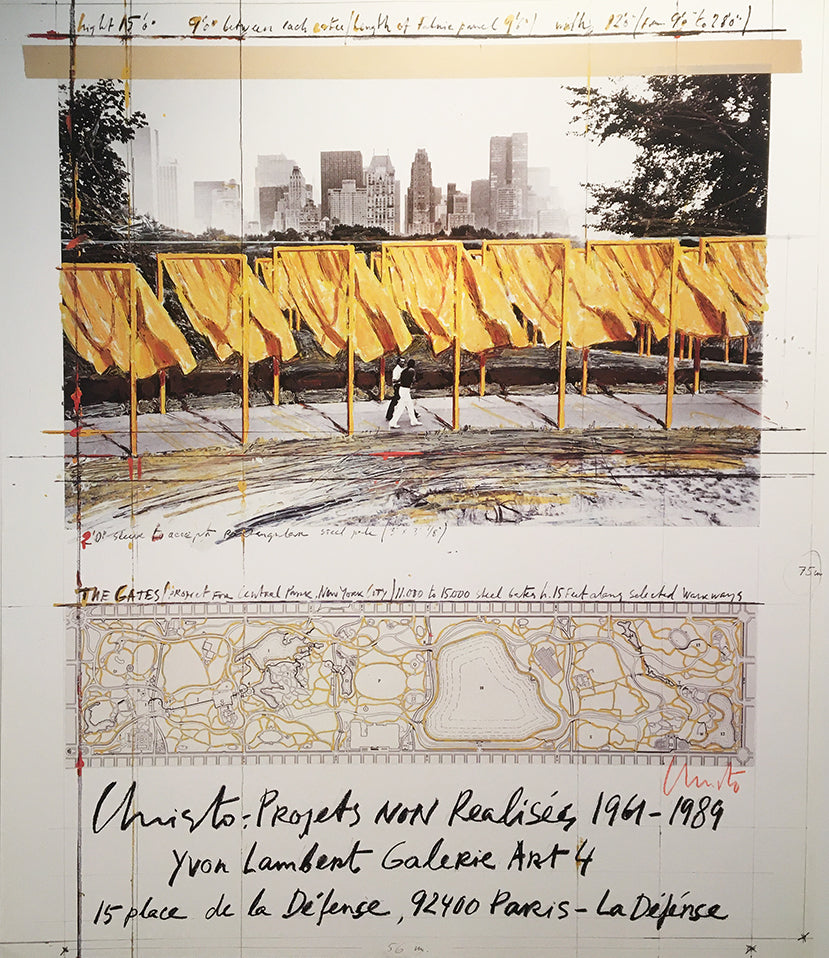 hight 15'0" 9'0" between each gates/(length of fabric panel 9'0") walks 12'5" (from 9'0" to 28'0")
2'0" sleeve to accept rectangular steel pole
THE GATES/PROJECT FOR Central Park, New York City/11.000 to 15.000 steel gates h. 15 Feet along selected walkways
75 cm
Christo
Christo: PROJETS NON Realisés 1961-1989
Yvon Lambert Galerie ART 4
15 place de la Défense, 92400 PARIS - La Défense
56 m.